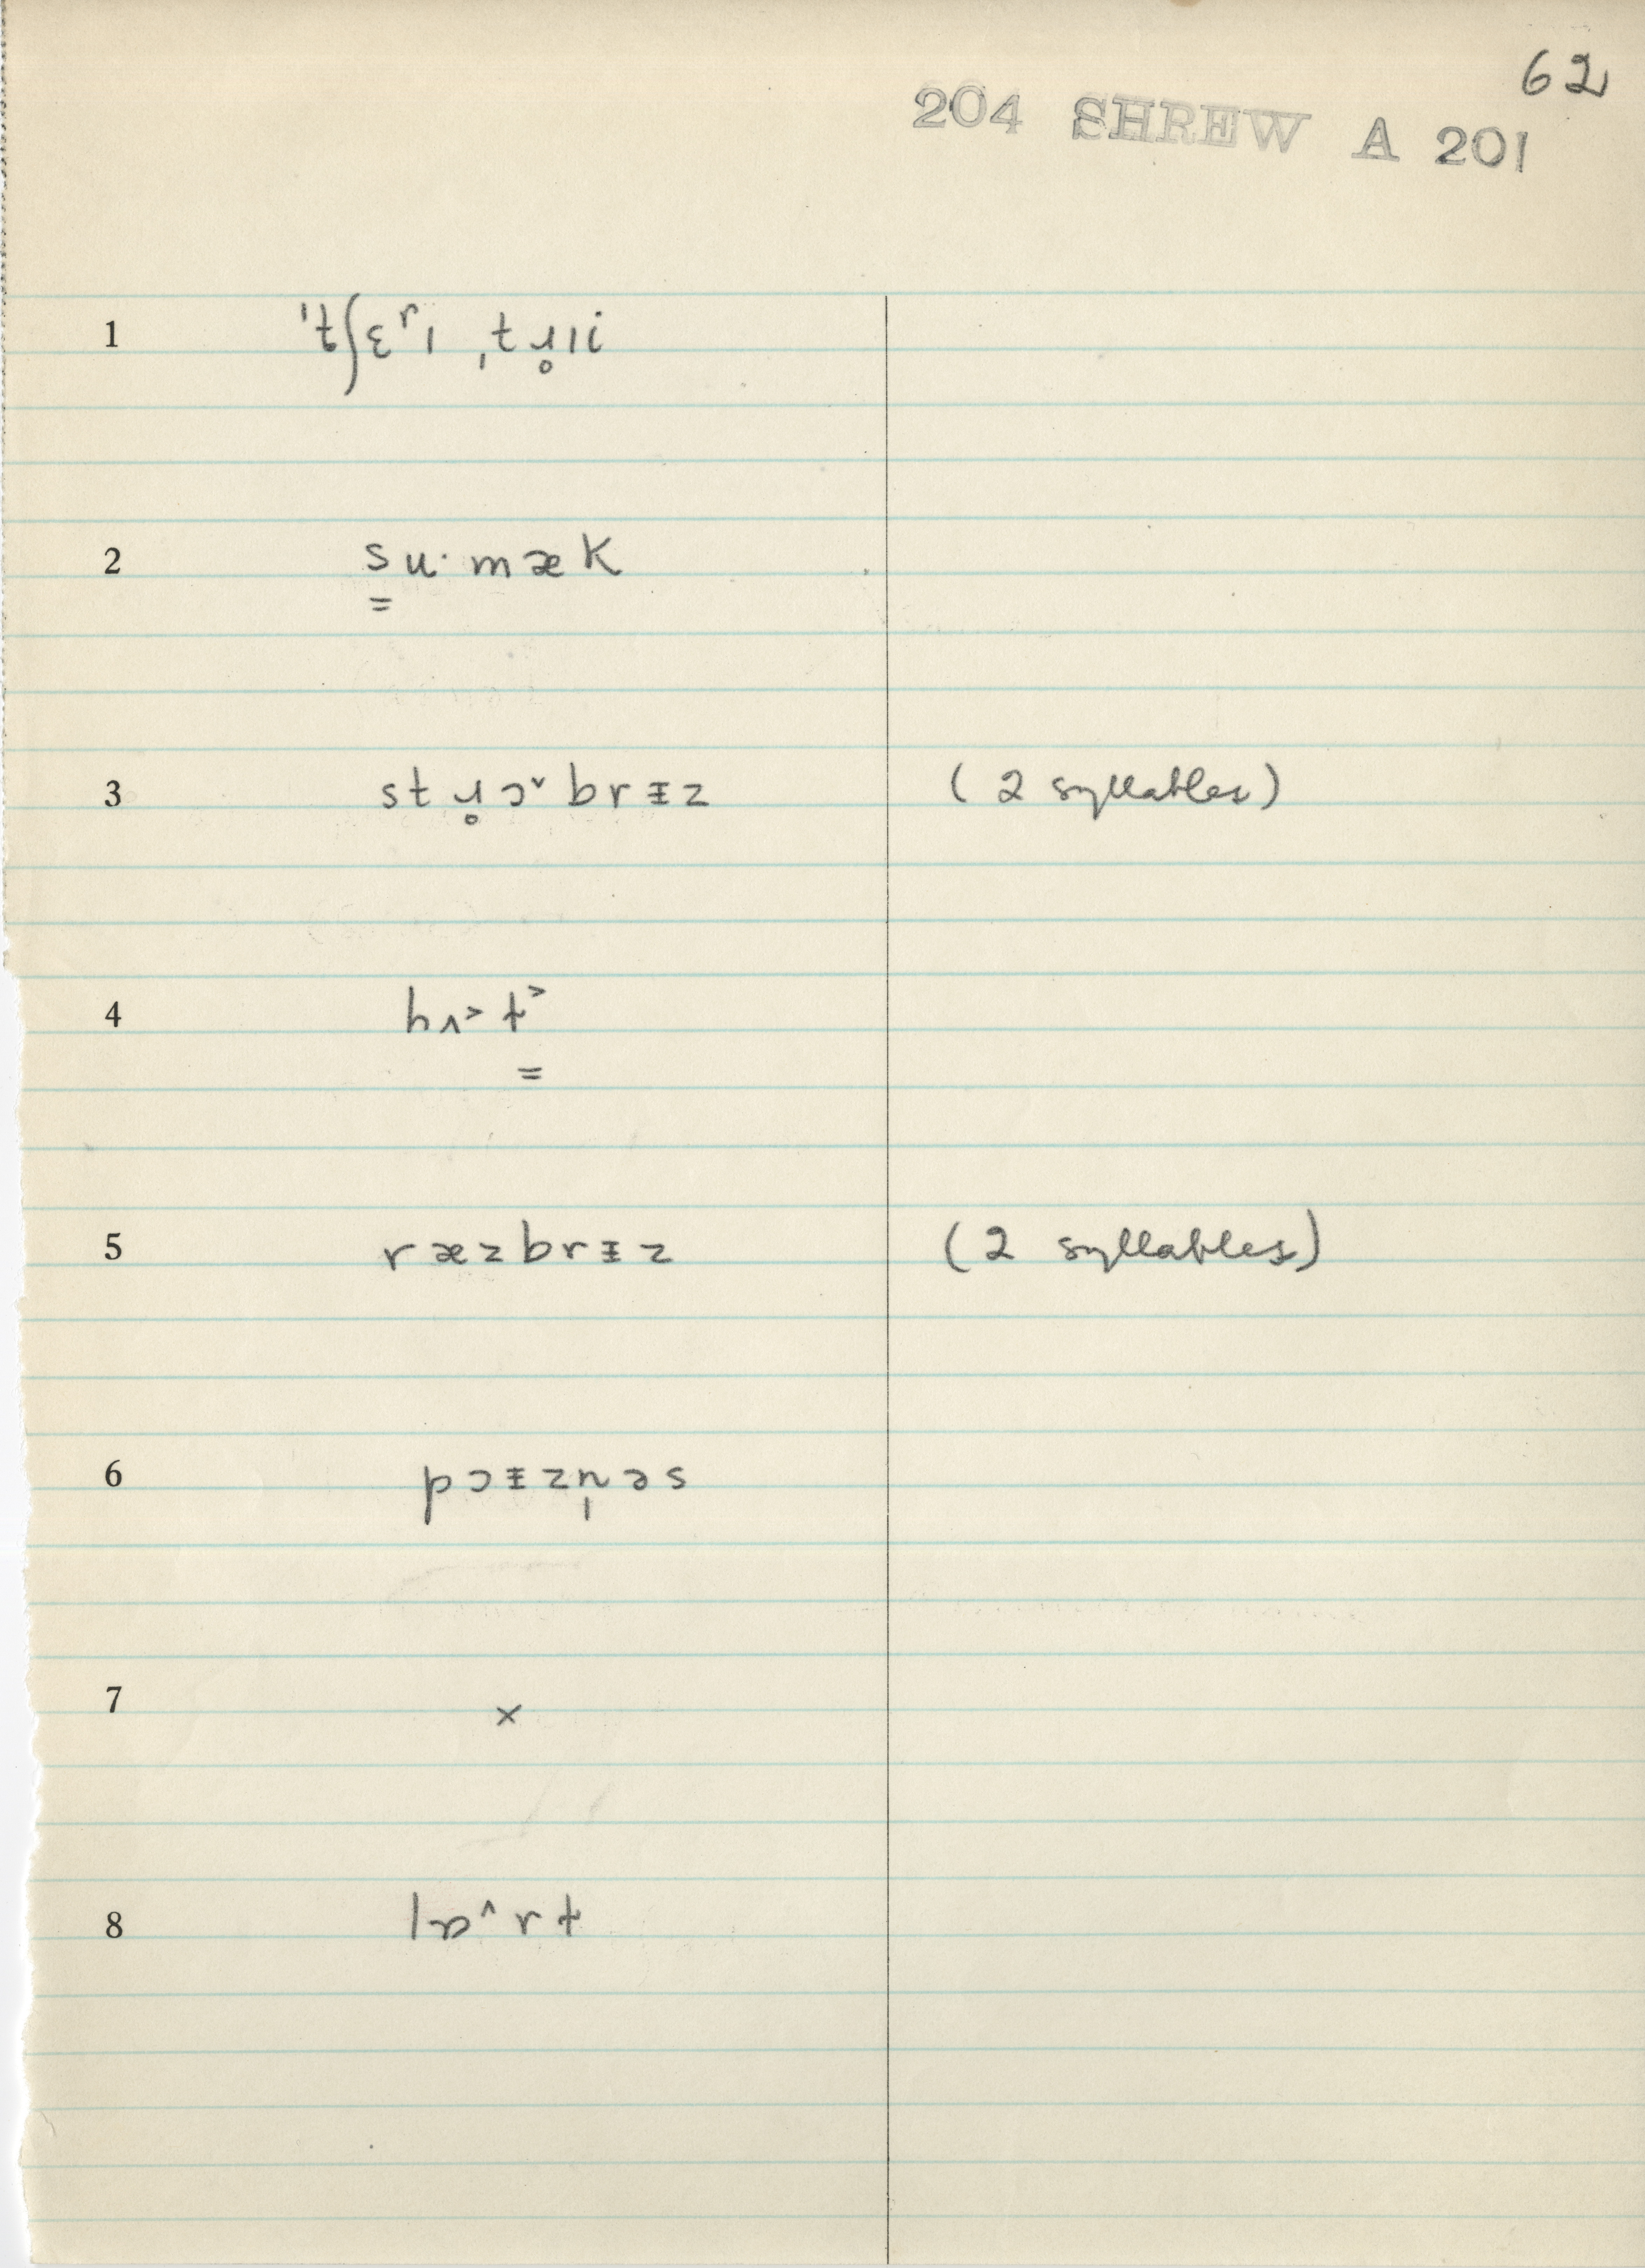 62
204 SHREW A 201
1 ˈtʃɛʳɪ ˌtɹ̥ɪi
2 su·mæk
3 stɹ̥ɔ˅brɪ̵z (2 syllables)
4 hʌ˃t˃
5 ræzbrɪ̵z (2 syllables)
6 pɔɪ̵zn̩əs
7 ×
8 lɒ˄rt